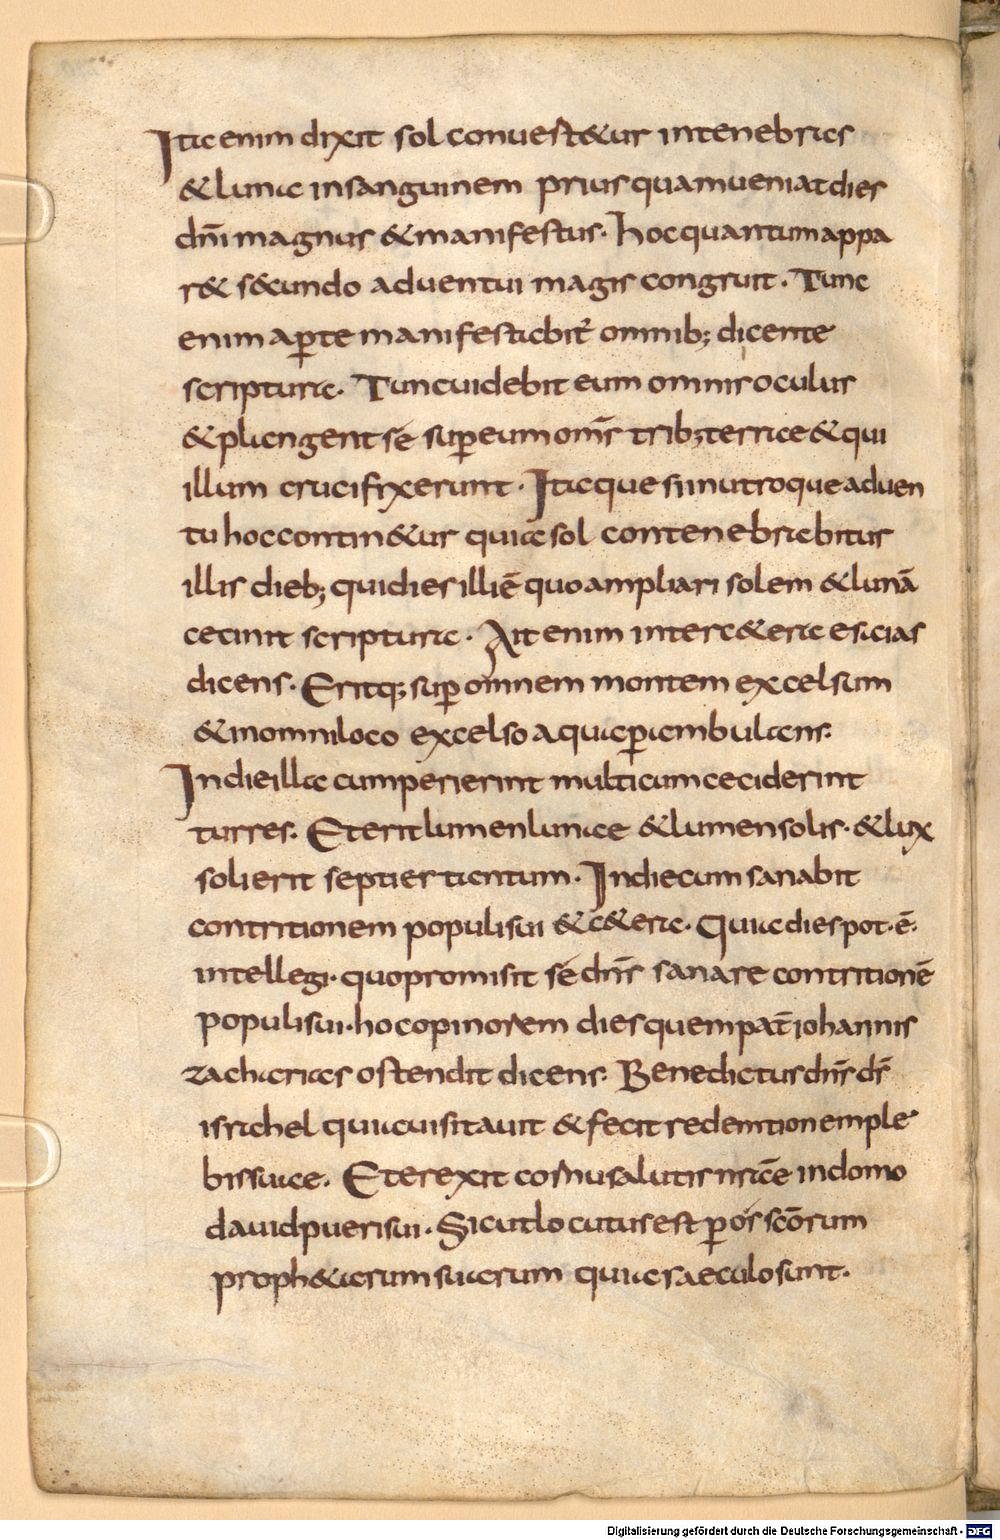 Ita enim dixit sol convert&ur intenebras
&luna insanguinem priusquamueniatdies
dn̄i magnus &manifestus. hocquantumappa
r&  s&cundo aduentui magis congruit. Tunc
enim ap̱te manifestabit̄ omnib; dicente
scriptura. Tuncuidebit eum omnis oculus
&plangent sé sup̱eum om̄s trib; terrae &qui
illum crucifixerunt. Itaque siinutroque aduen
tu hoccontin&ur quia sol contenebrabitur
illis dieb; quidies illiē quo ampliari solem &lunā
cecinit scriptura. Ait enim interc&era esaias
dicens. Eritq; sup̱ omnem montem excelsum
&inomniloco excelso aquap̱ambulans.
Indieilla cumperierint multicumceciderint
turres. Eteritlumenlunae &lumensolis. &lux
soli erit septiestantum. Indiecum sanabit
contritionem populisui &c&era. Quae dies pot. ē.
intellegi. quopromisit sé dn̄s sanare contritionē
populisui. hocopinorem dies quempat̄ iohannis
zacharias ostendit dicens. Benedictus dn̄s ds̄
israhel quiauisitauit &fecit redemtionemple
bissuae. Eterexit cornusalutis nr̄ae indomo
dauidpuerisui. Sicutlocutusest p̱ os scōrum
proph&arumsuarum quiasaeculosunt.
Digitalisierung gefördert durch die Deutsche Forschungsgemeinschaft - DFG